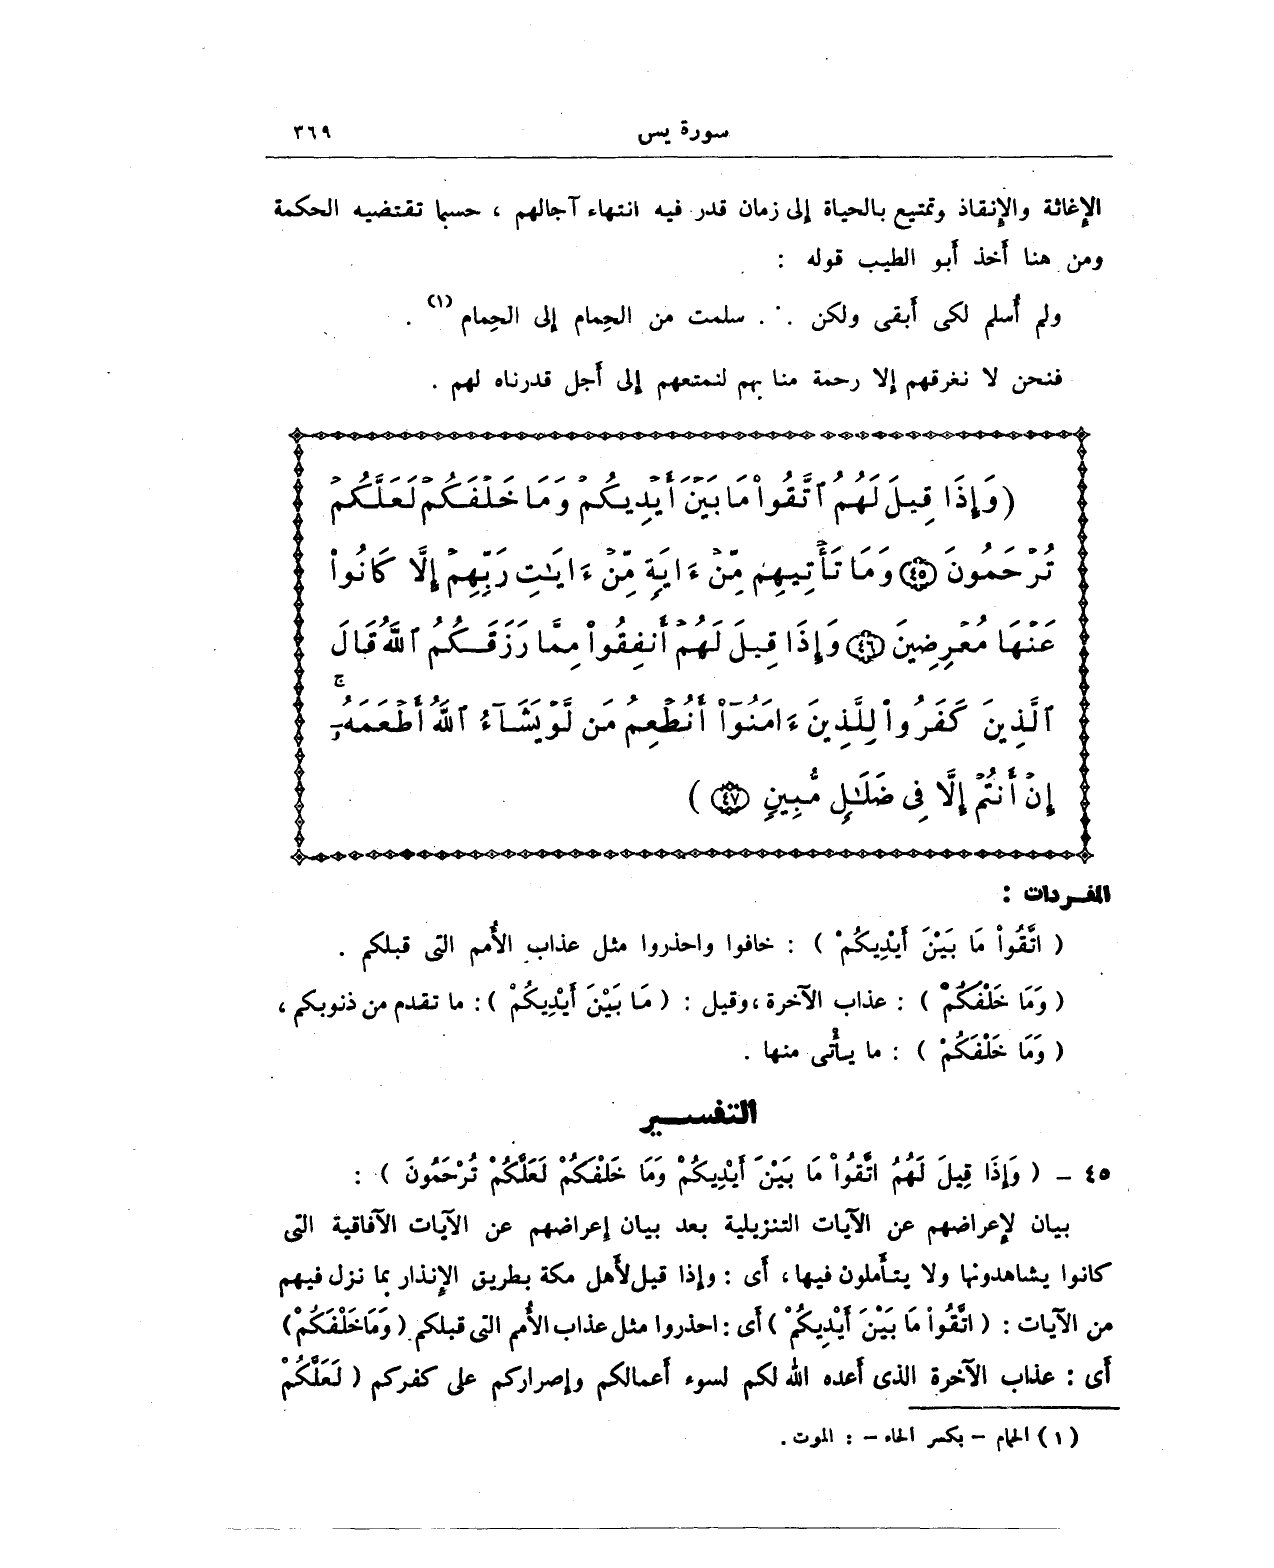 سورة يس ٣٦٩
الإغاثة والإنقاذ وتمتيع بالحياة إلى زمان قدر فيه انتهاء آجالهم ، حسبما تقتضيه الحكمة
ومن هنا أخذ أبو الطيب قوله :
ولم أسلم لكى أبقى ولكن .˙. سلمت من الحِمام إلى الحِمام (١) .
فنحن لا نغرقهم إلا رحمة منا بهم لنمتعهم إلى أجل قدرناه لهم .
( وَإِذَا قِيلَ لَهُمُ ٱتَّقُوا۟ مَا بَيْنَ أَيْدِيكُمْ وَمَا خَلْفَكُمْ لَعَلَّكُمْ
تُرْحَمُونَ ٤٥ وَمَا تَأْتِيهِم مِّنْ ءَايَةٍ مِّنْ ءَايَٰتِ رَبِّهِمْ إِلَّا كَانُوا۟
عَنْهَا مُعْرِضِينَ ٤٦ وَإِذَا قِيلَ لَهُمْ أَنفِقُوا۟ مِمَّا رَزَقَكُمُ ٱللَّهُ قَالَ
ٱلَّذِينَ كَفَرُوا۟ لِلَّذِينَ ءَامَنُوٓا۟ أَنُطْعِمُ مَن لَّوْ يَشَآءُ ٱللَّهُ أَطْعَمَهُۥٓ ۚ
إِنْ أَنتُمْ إِلَّا فِى ضَلَٰلٍ مُّبِينٍ ٤٧ )
المفـردات :
( اتَّقُوا۟ مَا بَيْنَ أَيْدِيكُمْ ) : خافوا واحذروا مثل عذاب الأُمم التى قبلكم .
( وَمَا خَلْفَكُمْ ) : عذاب الآخرة ، وقيل : ( مَا بَيْنَ أَيْدِيكُمْ ) : ما تقدم من ذنوبكم ،
( وَمَا خَلْفَكُمْ ) : ما يأْتى منها .
التفسـير
٤٥ – ( وَإِذَا قِيلَ لَهُمُ اتَّقُوا۟ مَا بَيْنَ أَيْدِيكُمْ وَمَا خَلْفَكُمْ لَعَلَّكُمْ تُرْحَمُونَ ) :
بيان لإعراضهم عن الآيات التنزيلية بعد بيان إعراضهم عن الآيات الآفاقية التى
كانوا يشاهدونها ولا يتأملون فيها، أى : وإذا قيل لأهل مكة بطريق الإنذار بما نزل فيهم
من الآيات : ( اتَّقُوا۟ مَا بَيْنَ أَيْدِيكُمْ ) أى : احذروا مثل عذاب الأُمم التى قبلكم ( وَمَا خَلْفَكُمْ )
أى : عذاب الآخرة الذى أعده الله لكم لسوء أعمالكم وإصراركم على كفركم ( لَعَلَّكُمْ
(١) الحمام – بكسر الحاء – : الموت .